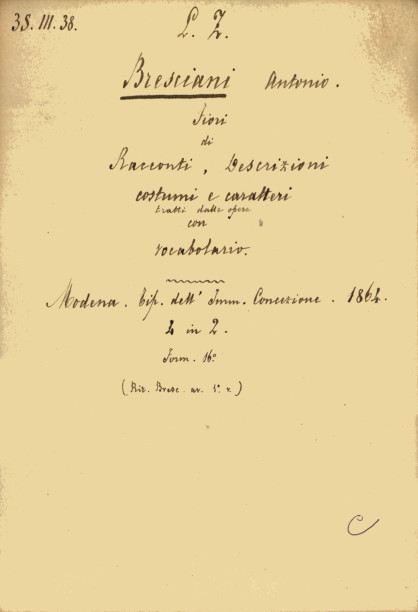 38. III. 38.
L. Z.
Bresciani Antonio.
Fiori
di
Racconti, Descrizioni
costumi e caratteri
tratti dalle opere
con
vocabolario.
Modena. Tip. dell' Imm. Concezione. 1864.
4 in 2.
Form. 16º
Bresc.
C